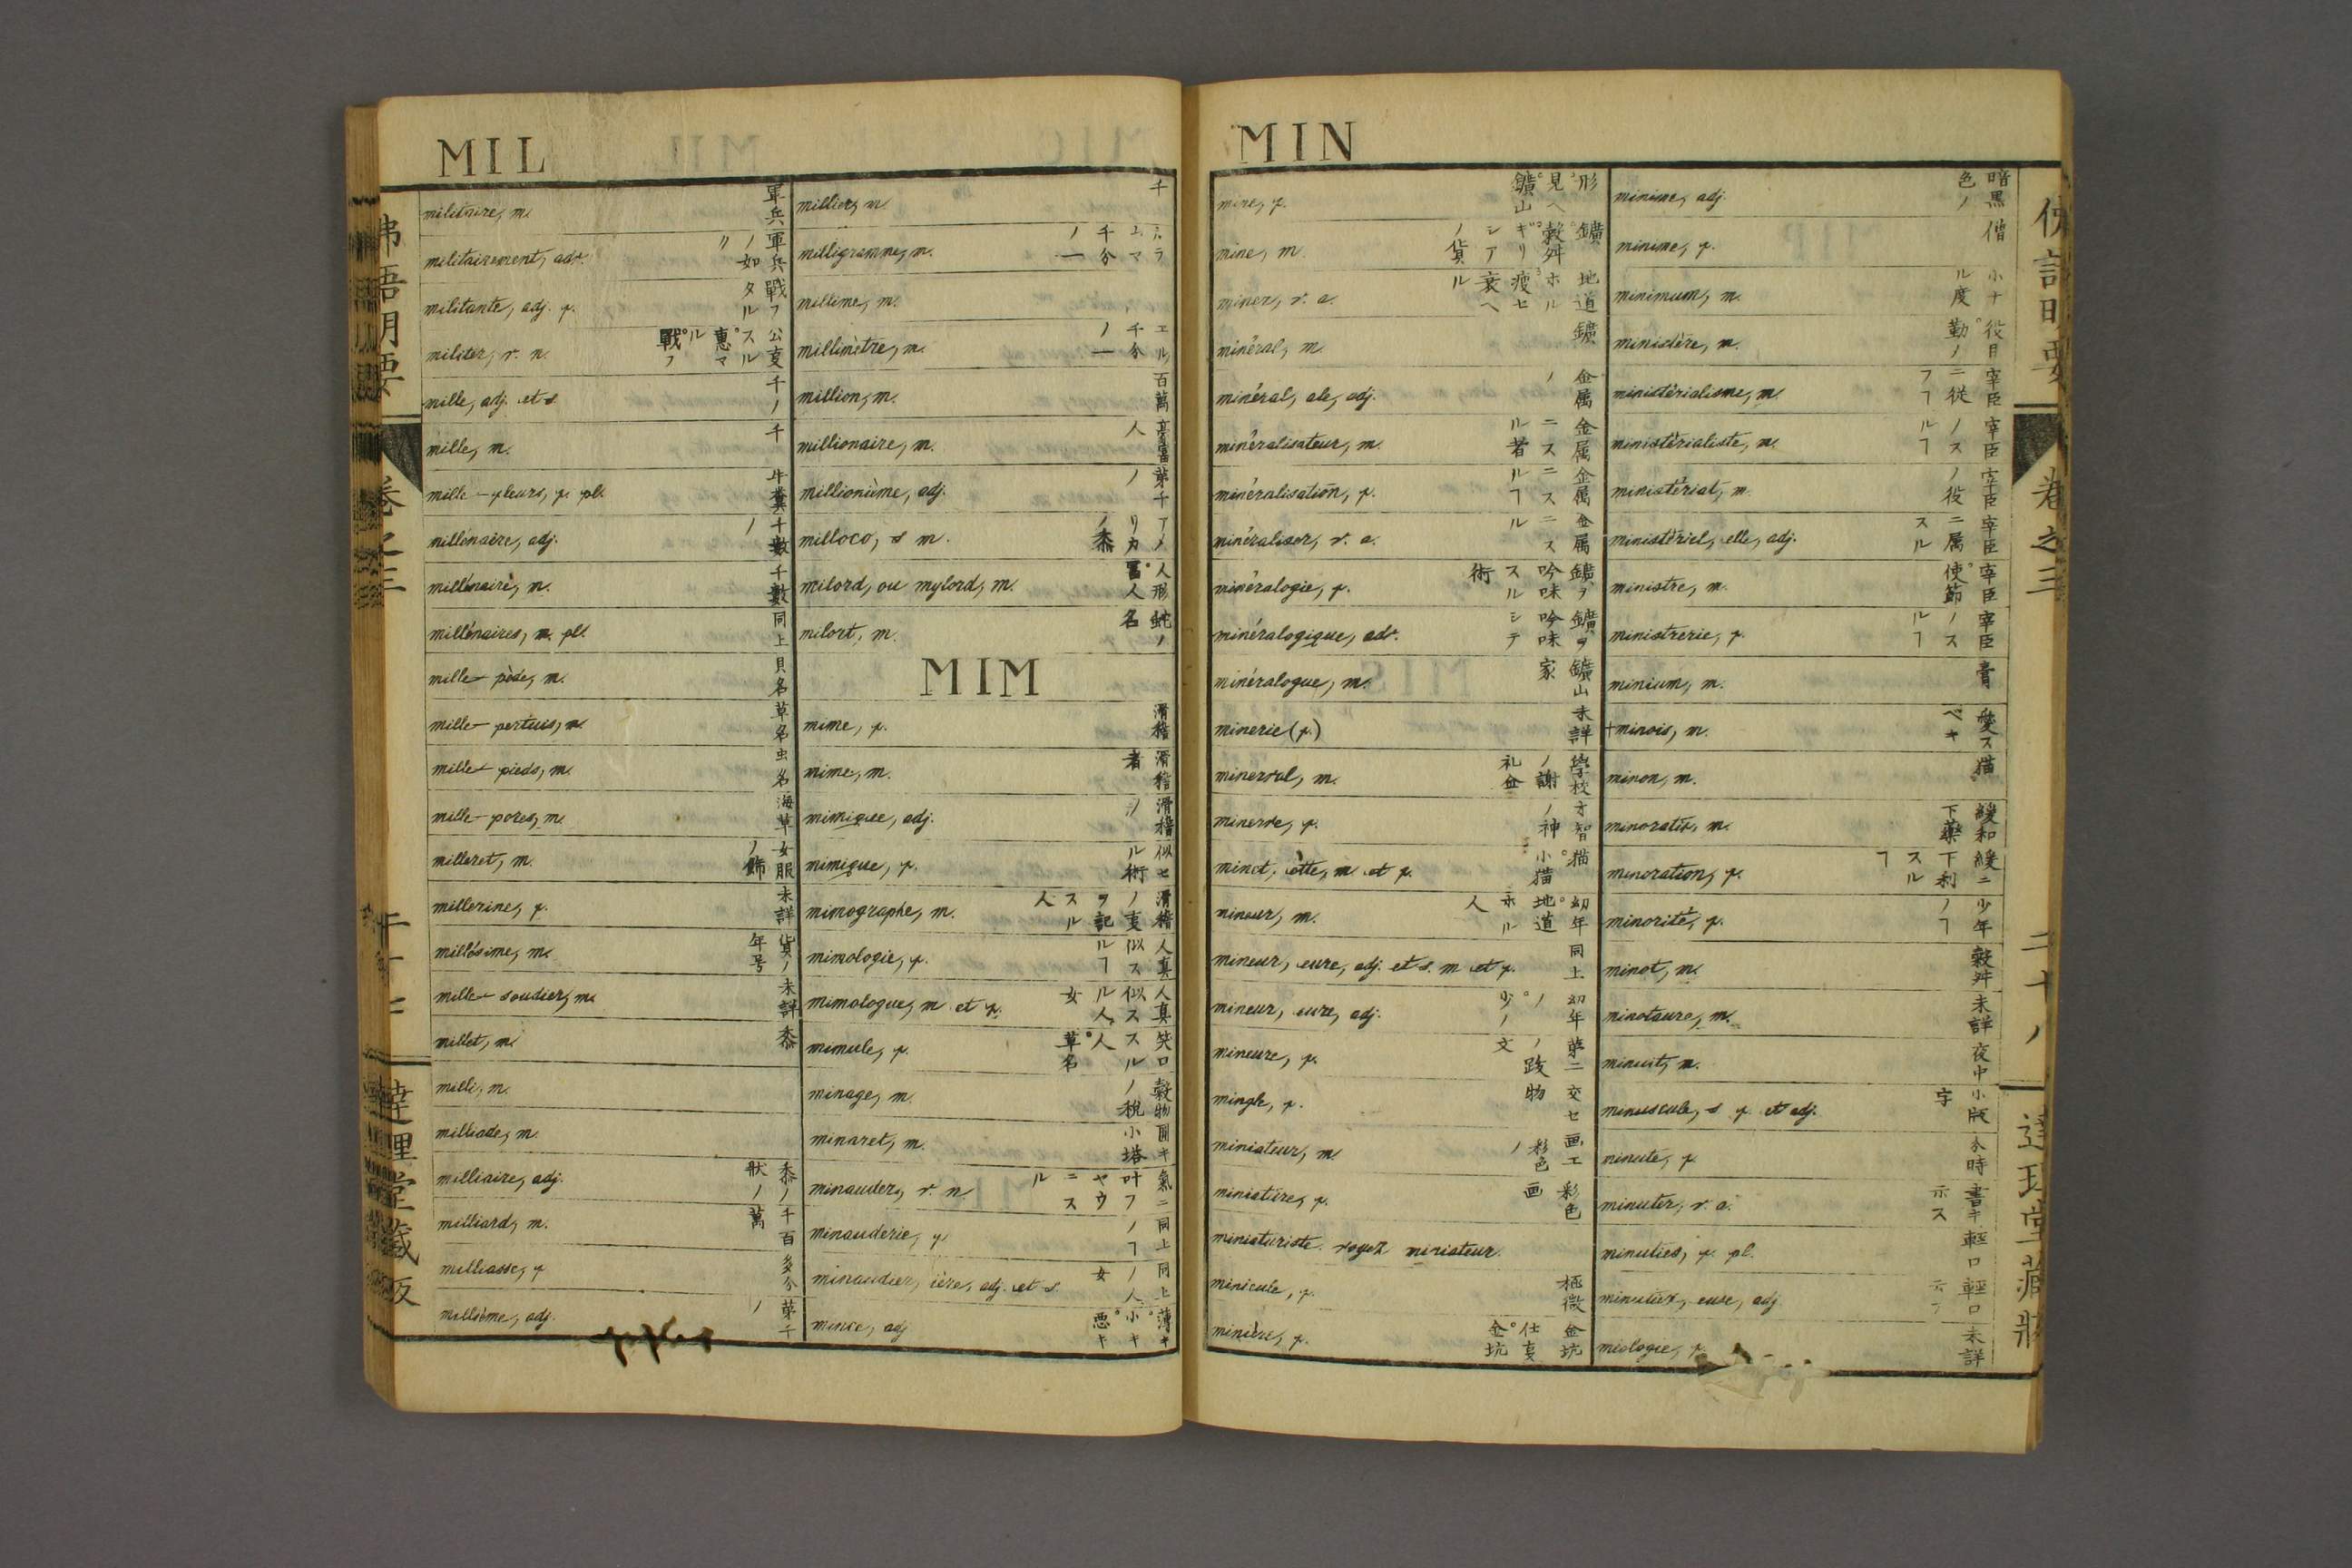 MIL
militaire, m. 軍兵
militairement, adv. 軍兵ノ如〃
militante, adj. f. 戰フタル
militer, v. n. 公叓スル°惠マル°戰フ
mille, adj. et s. 千ノ
mille, m. 千
mille-fleurs, f. pl. 牛糞
millénaire, adj. 千數ノ
millénaire, m. 千數
millénaires, m. pl. 同上
mille-pède, m. 貝名
mille-pertuis, m. 草名
mille-pieds, m. 虫名
mille-pores, m. 海草
milleret, m. 女服ノ餙
millerine, f. 未詳
millésime, m. 貨ノ年号
mille-soudier, m. 未詳
millet, m. 黍
milli, m.
milliade, m.
milliaire, adj. 黍ノ狀ノ
milliard, m. 千百萬
milliasse, f. 多分
millième, adj. 第千ノ
millier, m. 千
milligramme, m. 千分ノ一
millime, m.
millimètre, m. エル千分ノ一
million, m. 百萬
millionaire, m. 豪富人
millionième, adj. 第千ノ
milloco, s m. アメリカノ黍
milord, ou mylord, m. 人形°冨人
milort, m. 蛇ノ名
MIM
mime, f. 滑稽
mime, m. 滑稽者
mimique, adj. 滑稽ノ
mimique, f. 似セル術
mimographe, m. 滑稽ノ叓ヲ記スル人
mimologie, f. 人真似スルヿ
mimologue, m. et f. 人真似スル人女
mimule, f. 笑口スル人°草名
minage, m. 穀物ノ税
minaret, m. 圓キ小塔
minauder, v. n. 氣ニ叶フヤウニスル
minauderie, f. 同上ノヿ
minaudier, ière, adj. et s. 同上ノ人女
mince, adj. 薄キ°小キ°悪キ
MIN
mine, f. 形°見ヘ°鑛山
mine, m. 鑛°穀舛°ギリシアノ貨
miner, v. a. 地道ホル°瘦セ衰ヘル
minéral, m. 鑛
minéral, ale, adj. 金属ノ
minéralisateur, m. 金属ニスル者
minéralisation, f. 金属ニスルヿ
minéraliser, v. a. 金属ニスル
minéralogie, f. 鑛ヲ吟味スル術
minéralogique, adv. 鑛ヲ吟味シテ
minéralogue, m. 鑛山家
minerie (f.) 未詳
minerval, m. 學校ノ謝礼金
minerve, f. 才智ノ神
minet, ette, m. et f. 猫°小猫
mineur, m. 幼年°地道ホル人
mineur, eure, adj. et s. m et f. 同上
mineur, eure, adj. 幼年ノ°少ノ
mineure, f. 第二ノ跂文
mingle, f. 交セ物
miniateur, m. 画工ノ彩色
miniature, f. 彩色画
miniaturiste. voyez miniateur.
minicule, f. 極微
minière, f. 金坑仕叓°金坑
minime, adj. 暗黒色ノ
minime, f. 僧
minimum, m. 小ナル度
ministère, m. 役目°勤ノ
ministérialisme, m. 宰臣ニ從フヿ
ministérialiste, m. 宰臣ノスルヿ
ministériat, m. 宰臣ノ役
ministériel, elle, adj. 宰臣ニ属スル
ministre, m. 宰臣°使節
ministrerie, f. 宰臣ノスルヿ
minium, m. 膏
†minois, m. 愛スベキ
minon, m. 猫
minoratif, m. 緩和下藥
minoration, f. 緩ニ下利スルヿ
minorité, f. 少年ノヿ
minot, m. 穀舛
minotaure, m. 未詳
minuit, m. 夜中
minuscule, s f. et adj. 小版字
minute, f. 分時
minuter, v. a. 書キ示ス
minuties, f. pl. 輕口
minutieux, euse, adj. 輕口
miologie, f. 未詳
卷之三
達理堂藏